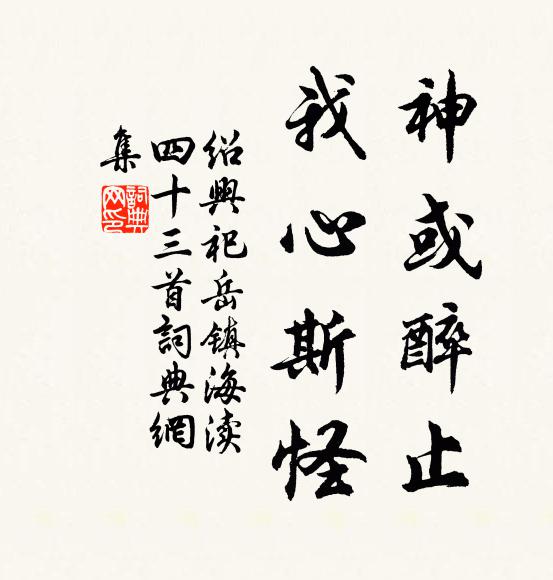 神或醉止
我心斯怪
绍興祀岳鎮海渎
四十三首詞典網
集
詞典
网印